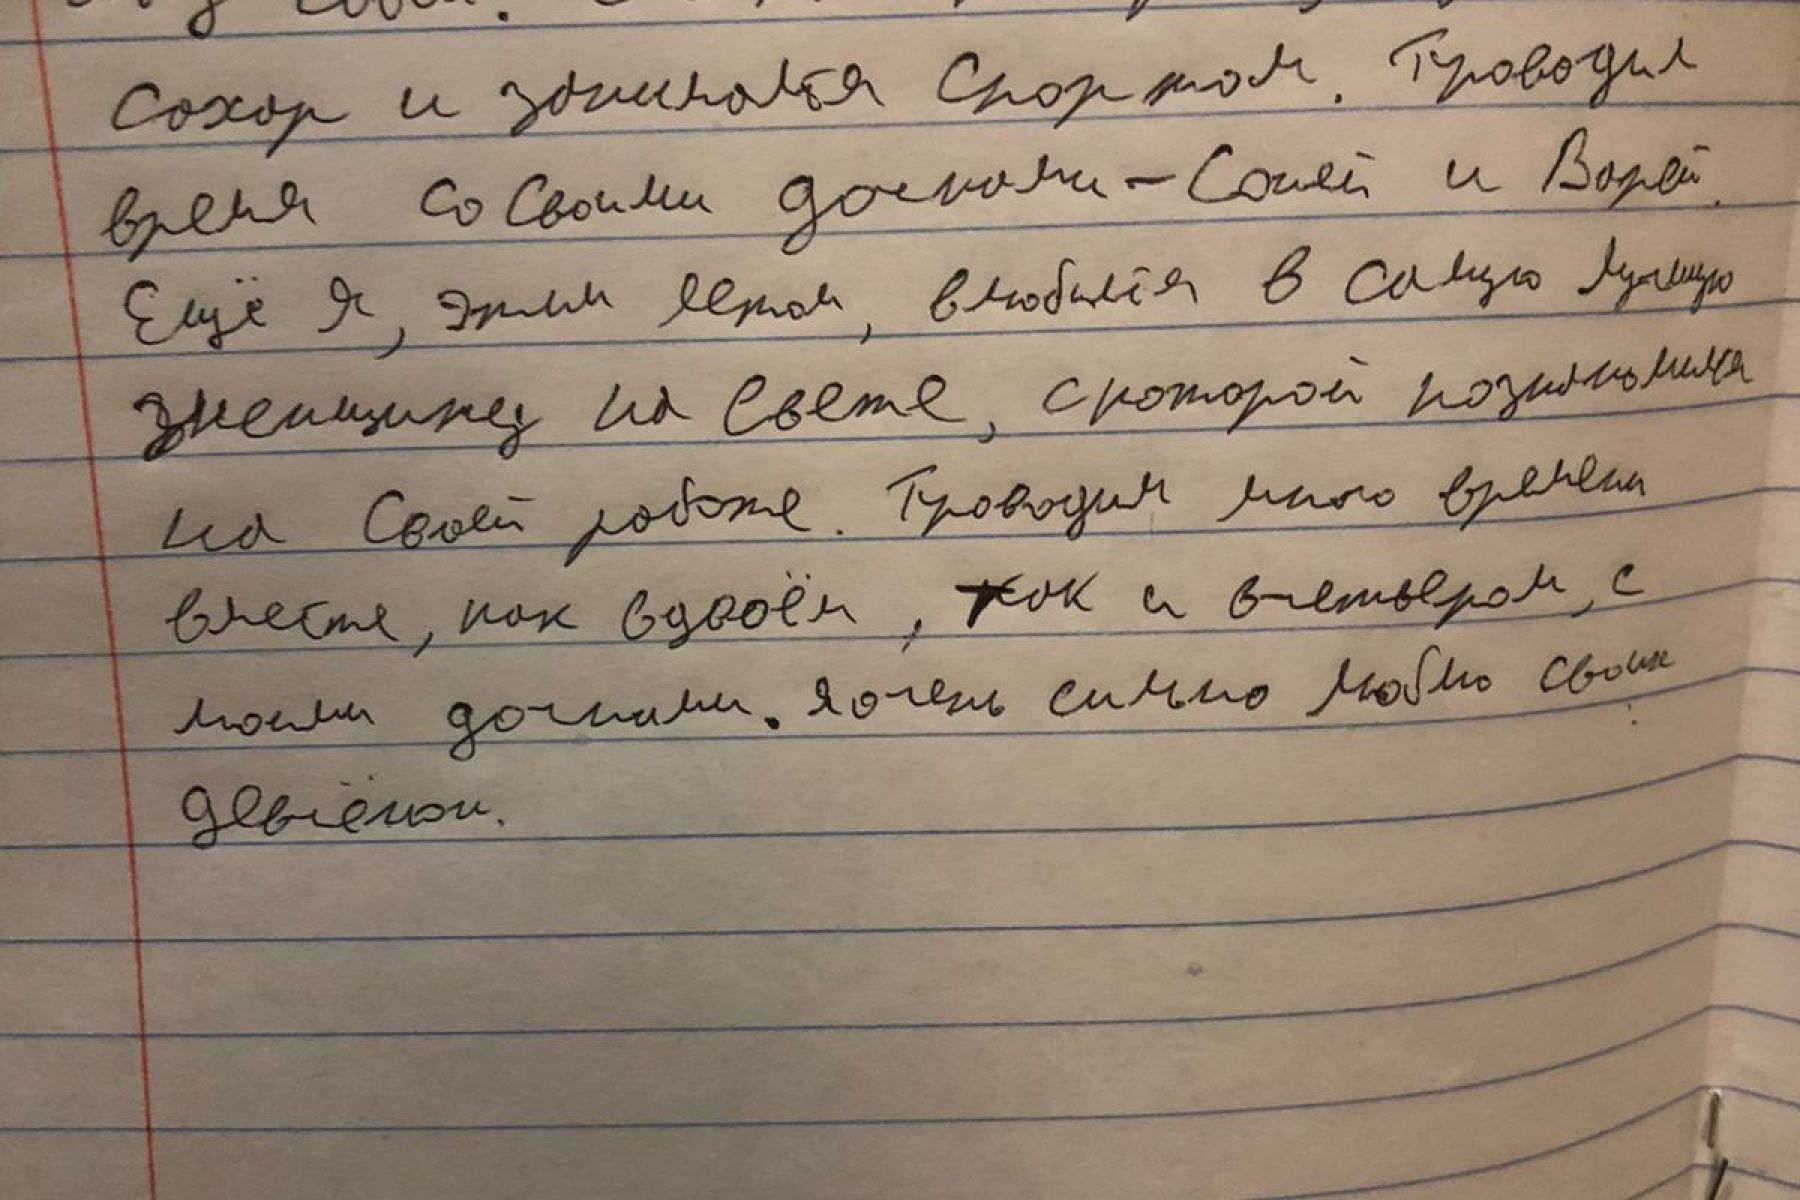 сахар и занимался спортом. Проводил
время со своими дочками - Соней и Варей.
Ещё я, этим летом, влюбился в самую лучшую
женщину на свете, с которой познакомился
на своей работе. Проводим много времени
вместе, как вдвоём, так и вчетвером, с
моими дочками. Я очень сильно люблю своих
девчёнок.